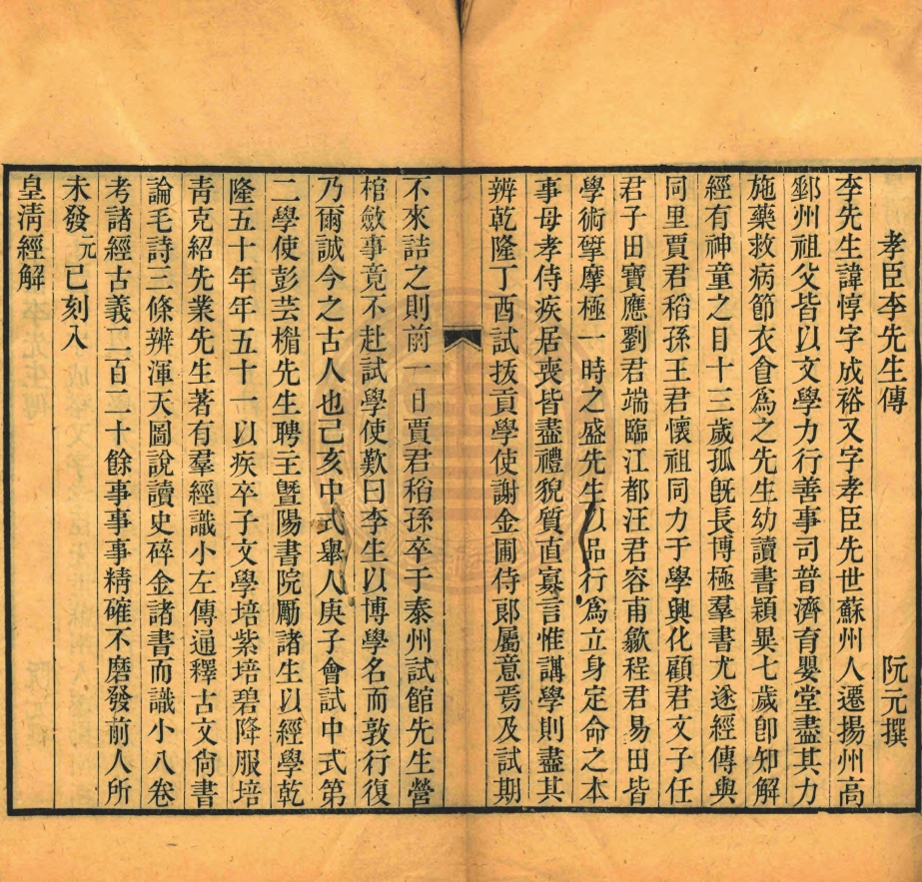 孝臣李先生傳　阮元撰
李先生諱惇字成裕又字孝臣先世蘇州人遷揚州高
郵州祖父皆以文學力行善事司普濟育嬰堂盡其力
施藥救病節衣食爲之先生幼讀書穎異七歲卽知解
經有神童之目十三歲孤旣長博極羣書尤遂經傳與
同里賈君稻孫王君懷祖同力于學興化顧君文子任
君子田寶應劉君端臨江都汪君容甫歙程君易田皆
學術摩極一時之盛先生以品行爲立身定命之本
事母孝侍疾居喪皆盡禮貌質直寡言惟講學則盡其
辨乾隆丁酉試拔貢學使謝金圃侍郞屬意焉及試期
不來詰之則前一日賈君稻孫卒于泰州試館先生營
棺斂事竟不赴試學使歎曰李生以博學名而敦行復
乃爾誠今之古人也己亥中式舉人庚子會試中式第
二學使彭芸楣先生聘主暨陽書院勵諸生以經學乾
隆五十年年五十一以疾卒子文學培紫培碧降服培
靑克紹先業先生著有羣經識小左傳通釋古文尙書
論毛詩三條辨渾天圖說讀史碎金諸書而識小八卷
考諸經古義二百二十餘事事事精確不磨發前人所
未發元已刻入
皇淸經解